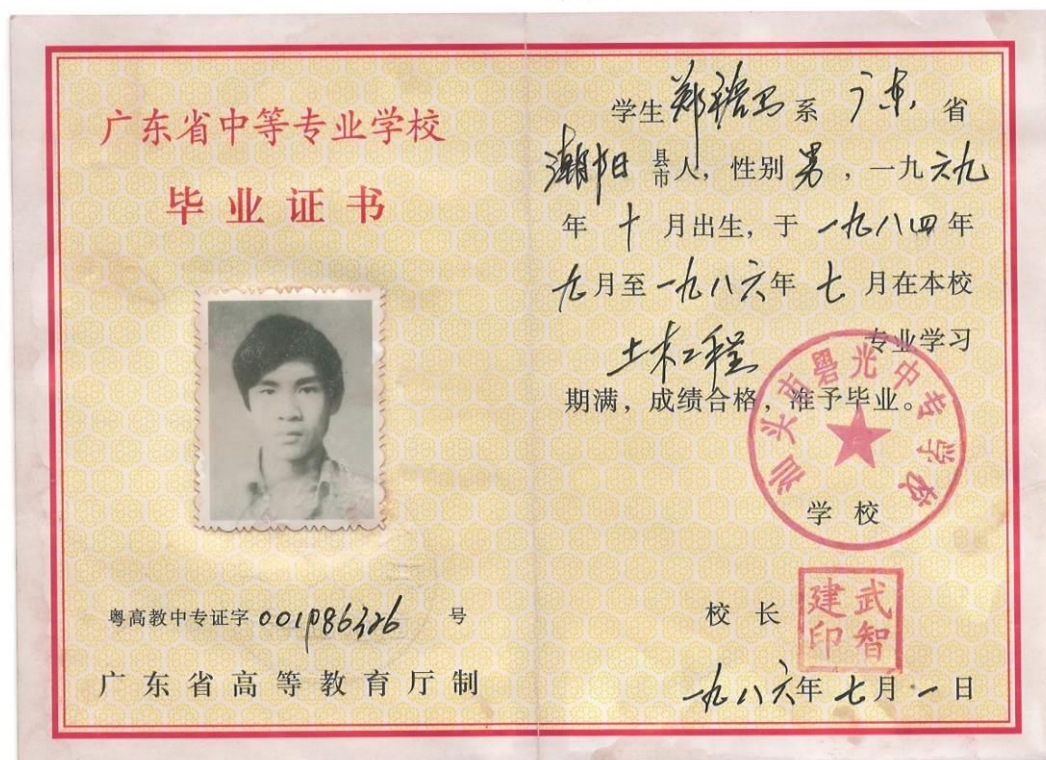 广东省中等专业学校
毕业证书
粤高教中专证字 号
广东省高等教育厅制
学生 郑 系 广东 省
潮阳 县市人，性别 男，一九六九
年 十 月出生，于 一九八四年
九月至一九八六年 七 月在本校
土木工程 专业学习
期满，成绩合格，准予毕业。
汕头市 光中专学校
学校
校长
武智建印
一九八六年 七月 一 日